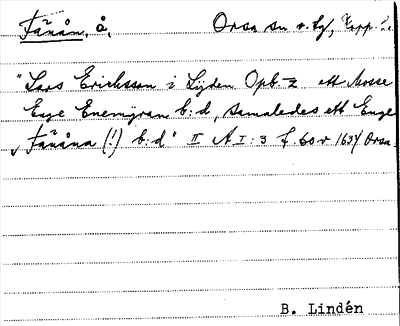 Fänån, å, Orsa sn o. tg, Kopp. l.
"Lars Ericksson i Lijden Opb-z ett Mosse
Enge Enemÿran b:d, samaledes ett Enge
Fänåna (!) b:d" II A I:3 f. 60v 1637 Orsa.
B. Lindén